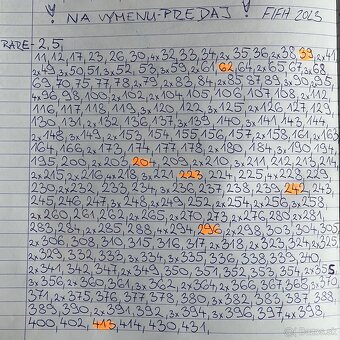 ! NA VÝMENU-PREDAJ ! FIFA 2023
RARE- 2, 5,
11, 12, 17, 23, 26, 30, 4x 32, 33, 34, 2x 35, 36, 2x 38, 39, 2x 41
2x 49, 3x 50, 51, 3x 52, 53, 3x 59, 2x 61, 62, 64, 2x 65, 67, 3x 68
69, 70, 75, 77, 78, 2x 79, 2x 83, 84, 2x 88, 89, 3x 90, 95,
4x 96, 98, 100, 2x 102, 2x 104, 105, 106, 107, 108, 112,
116, 117, 118, 119, 3x 120, 129, 3x 125, 2x 126, 127, 129
130, 131, 2x 132, 136, 137, 3x 139, 140, 3x 141, 143, 144,
2x 148, 3x 149, 2x 153, 154, 155, 156, 157, 2x 158, 161, 2x 163
164, 2x 166, 2x 173, 174, 177, 178, 2x 180, 184, 3x 190, 194
195, 200, 2x 203, 207, 209, 2x 210, 3x 211, 212, 213, 214
2x 215, 2x 216, 4x 218, 3x 221, 223, 224, 225, 4x 228, 229
230, 2x 232, 233, 234, 3x 236, 237, 238, 239, 242, 243,
245, 246, 247, 3x 248, 2x 249, 252, 2x 254, 2x 256, 3x 258
2x 260, 261, 262, 2x 265, 2x 270, 2x 273, 2x 276, 280, 2x 281,
283, 284, 2x 285, 288, 4x 294, 296, 2x 298, 303, 304, 305,
2x 306, 308, 310, 315, 316, 317, 2x 318, 2x 323, 324, 2x 325
2x 329, 332, 333, 334, 3x 335, 336, 338, 339, 340,
2x 341, 342, 347, 2x 349, 350, 351, 352, 353, 354, 2x 355,
3x 356, 2x 360, 361, 3x 362, 2x 364, 2x 366, 367, 3x 368, 370
371, 2x 375, 376, 377, 378, 380, 382, 383, 387, 388,
389, 390, 2x 391, 392, 3x 394, 3x 396, 397, 4x 398,
400, 402, 413, 414, 430, 431,